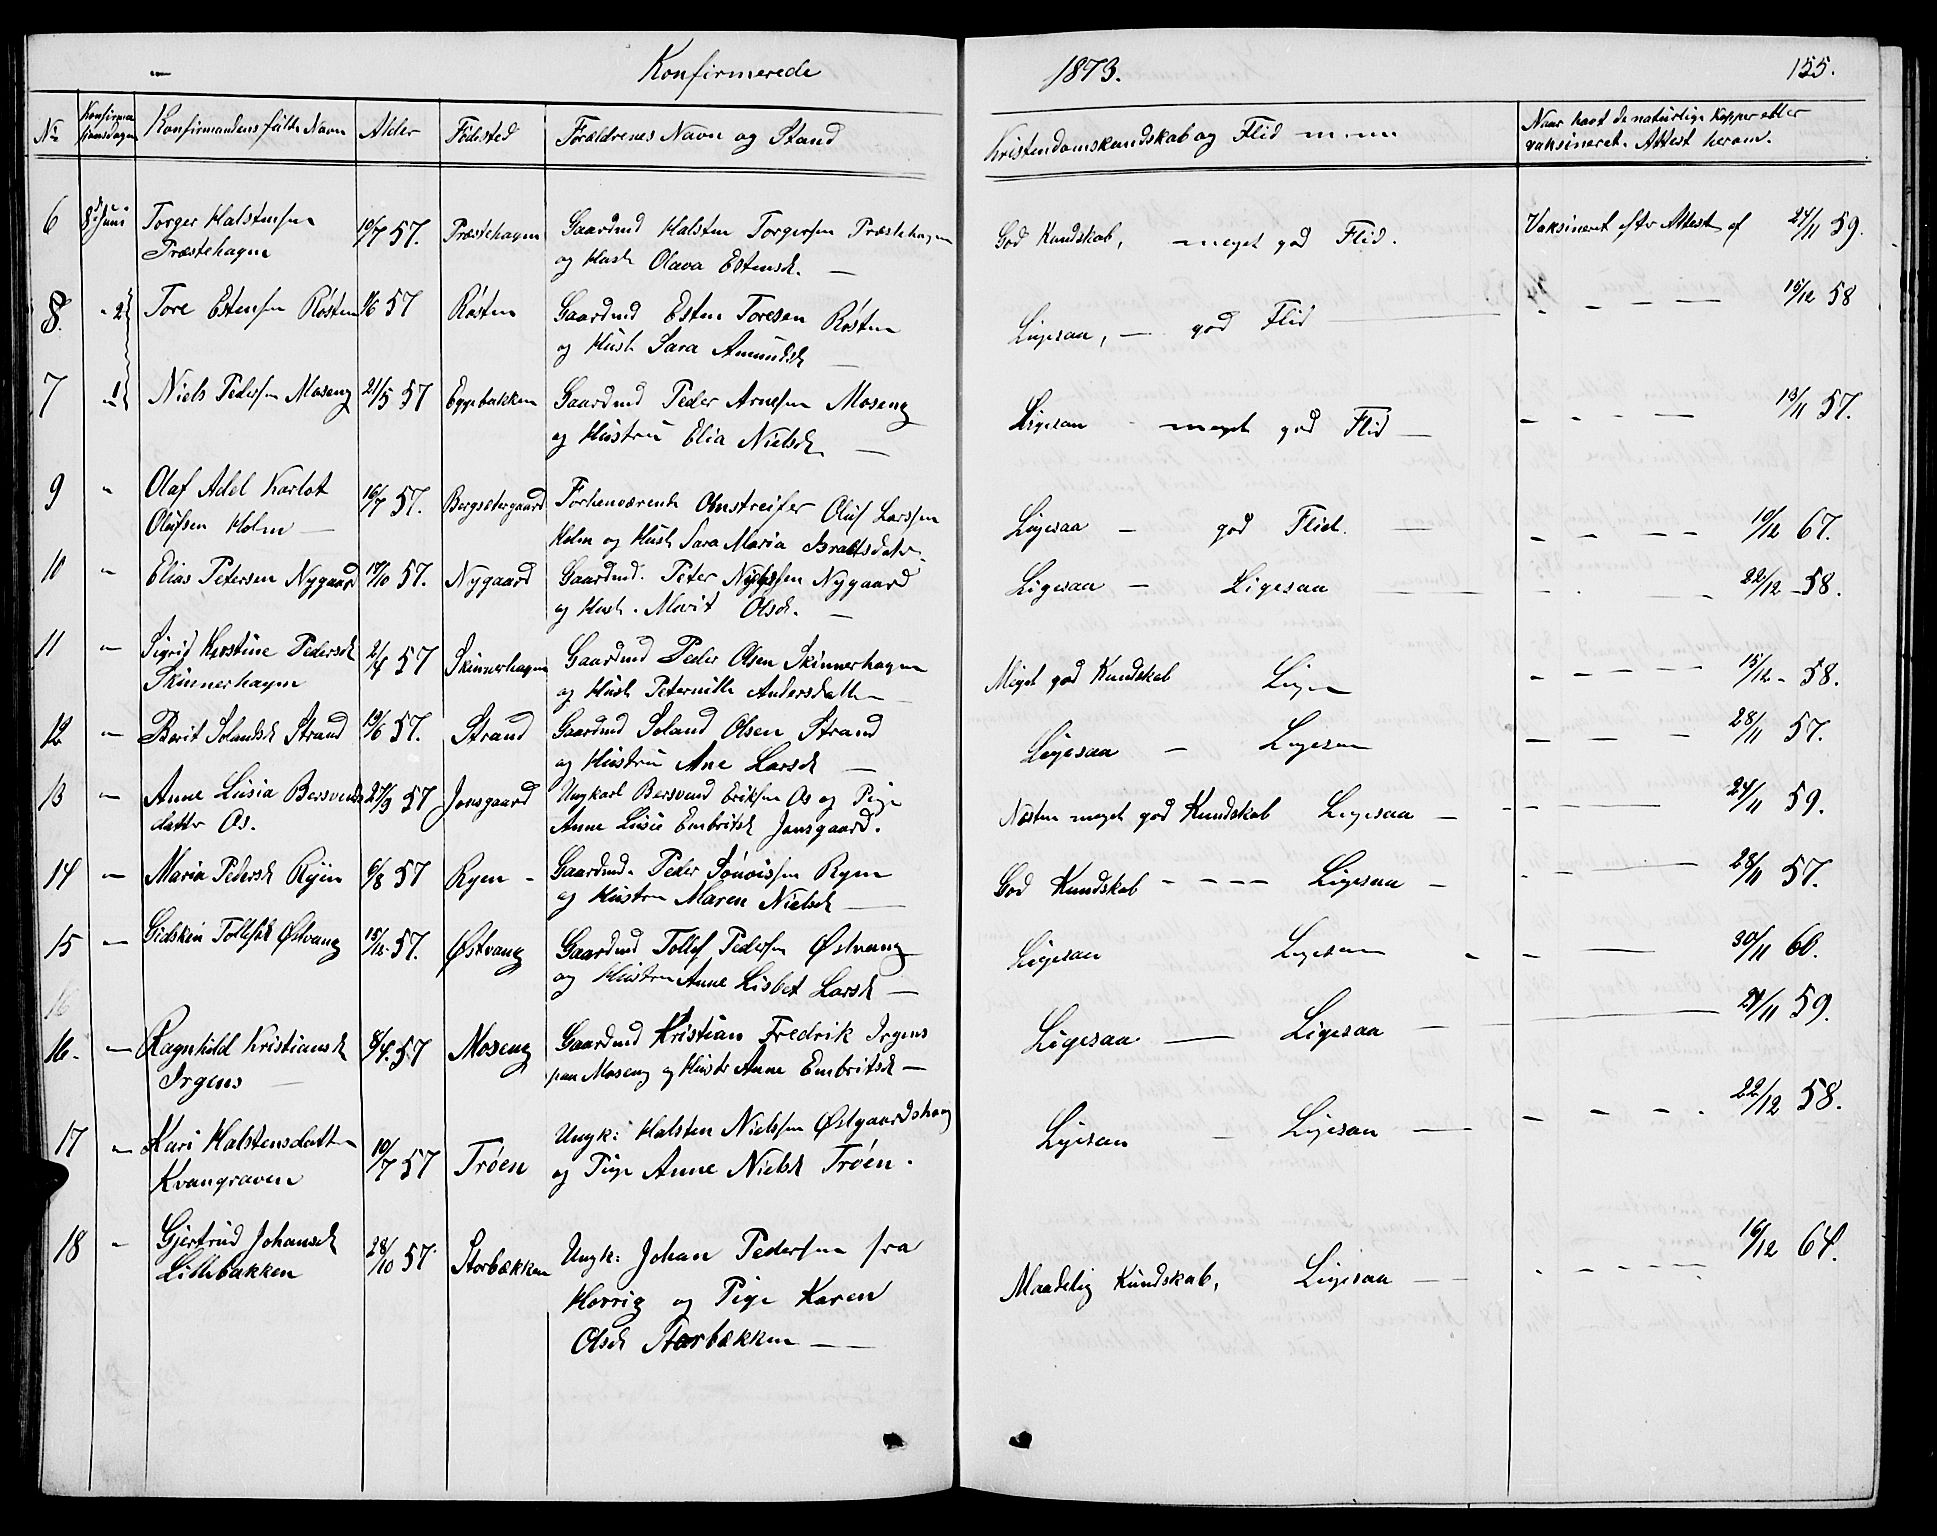 Konfirmerede 1873. 155.
No Konfirmationsdagen Konfirmandens fulde Navn Alder Fødested Forældrenes Navn og Stand Kristendomskundskab og Flid m.m. Naar havt de naturlige Kopper eller
vaksineret. Attest herom.
6 8de Juni Torger Halstensen 10/7 57. Præstehagen Gaardmd Halsten Torgersen Præstehagen God Kundskab, meget god Flid. Vaksineret efter Attest af 24/11 59.
Præstehagen og Hust Olava Estensd. —
8. " 2 Tore Estensen Røsten 1/6 57 Røsten Gaardmd Esten Toresen Røsten Ligesaa, — god Flid — " — — — 15/12 58
og Hust Sara Amundsd —
7 " 1 Niels Pedersen Moseng 21/5 57 Eggebakken Gaardmd Peder Arnesen Moseng Ligesaa - meget god Flid — — - — — 13/11 57.
og Hustru Elia Nielsd —
9 " Olaf Adel Karlot 16/7 57. Bergsetergaard Forhenværende Omstreifer Oluf Larssen Ligesaa — god Flid. — — — — — 10/12 67.
Olufsen Holm — Holm og Hust Sara Maria
10 " Elias Petersen Nygaard 17/10 57. Nygaard Gaardmd. Peter Nygaard Ligesaa — Ligesaa — — — 22/12 58.
og Hust. Marit Olsd. —
11 " Sigrid Kerstine Pedersd 2/4 57 Skinnerhagen Gaardmd Peder Olsen Skinnerhagen Meget god Kundskab Ligesaa — — — — 15/12 - 58.
Skinnerhagen og Hust Peternille Andersdatter
12 " Berit Solandsd Strand 13/6 57. Strand Gaardmd Soland Olsen Strand Ligesaa — Ligesaa — — — — 28/11 57.
og Hustru Ane Larsd —
13 " Anne Lusia Bersvends 27/3 57 Jonsgaard Ungkarl Bersvend Eriksen Os og Pige Næsten meget god Kundskab Ligesaa — - - — 24/11 59.
datter Os. Anne Lusie Embritsd Jonsgaard.
14 " Maria Pedersd Ryen 6/8 57 Ryen - Gaardmd. Peder Ryen God Kundskab - - - - Ligesaa — - - — 28/11 57.
og Hustru Maren Nielsd —
15 " Gidsken Tollefsd Østvang 15/12 57. Østvang Gaardmd Tollef Pedersen Østvang Ligesaa Ligesaa - - — 30/11 60.
og Hustru Anne Lisbet Larsd —
16
16. " Ragnhild Kristiansd 8/4 57 Moseng Gaardmd Kristian Fredrik Irgens Ligesaa — Ligesaa — 24/11 59.
Irgens — paa Moseng og Hustr Anne Embritsd —
17 " Kari Halstensdatter 10/7 57 Trøen Ungk: Halsten Nielssen Østgaardshaug Ligesaa — Ligesaa — — — — . 22/12 58.
Kvangraven og Pige Anne Nielsd Trøen.
18 " Gjertrud Johansd 28/10 57. Storbækken Ungk: Johan Pedersen fra Maadelig Kundskab, Ligesaa — - - — — 16/12 64.
Lillebakken Horrig og Pige Karen
Olsd Storbækken —